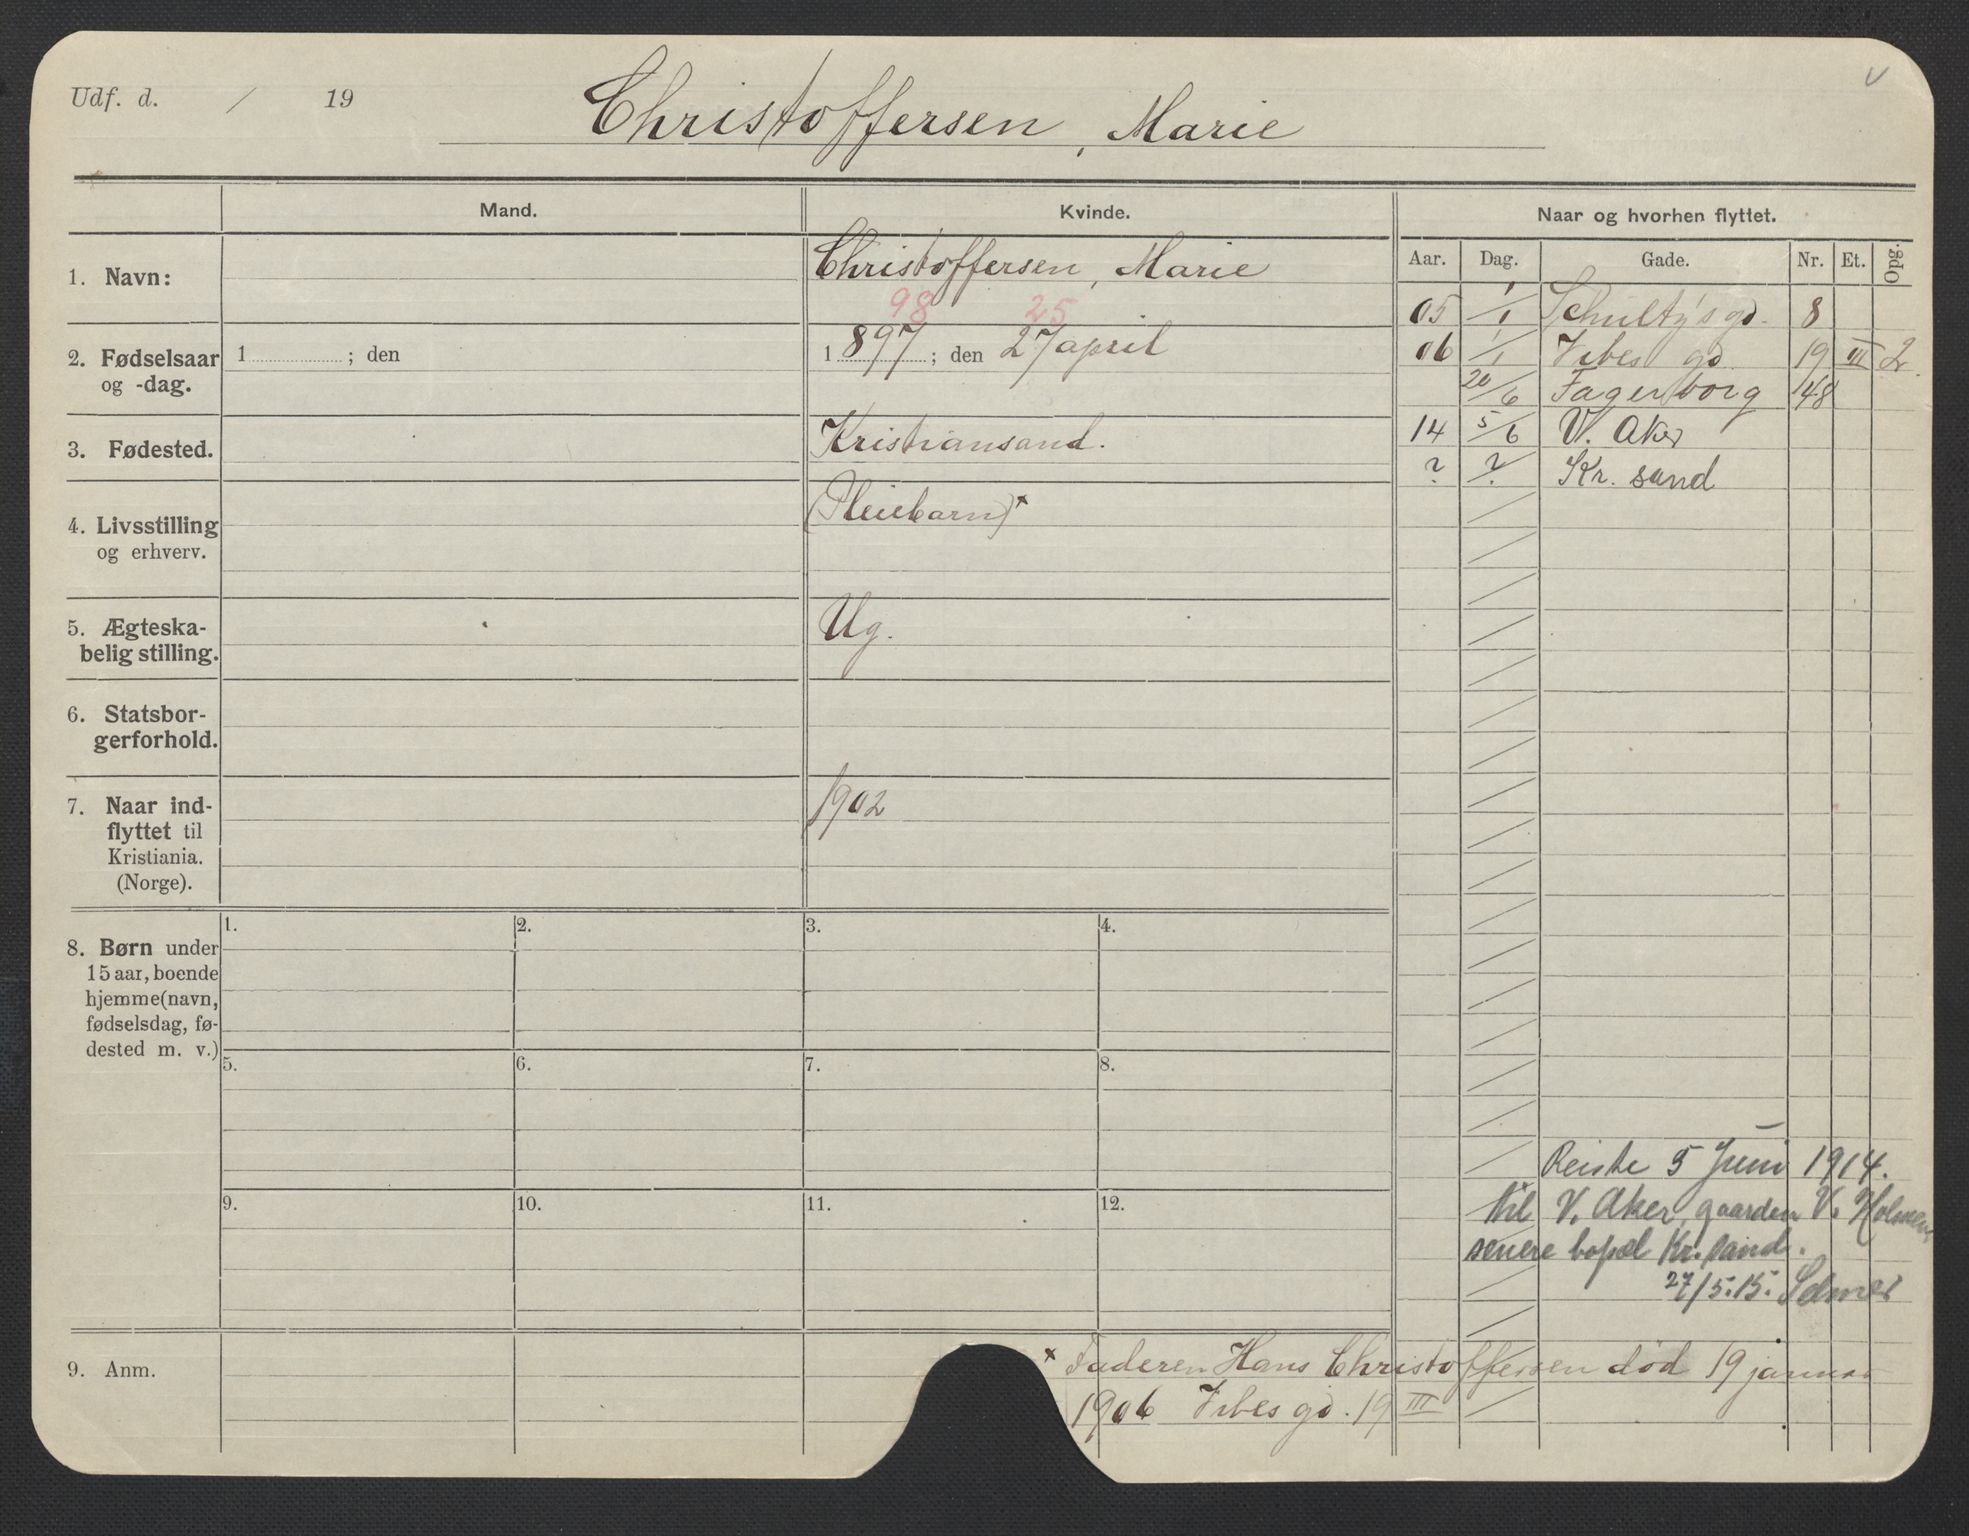 Udf. d. / 19
Christoffersen, Marie
v
Mand.
Kvinde.
Naar og hvorhen flyttet.
Aar. Dag. Gade. Nr. Et. Opg.
1. Navn:
Christoffersen, Marie
98 25
2. Fødselsaar
og -dag.
1 ; den
1897 ; den 27 april
3. Fødested.
Kristiansand.
4. Livsstilling
og erhverv.
(Pleiebarn)×
5. Ægteska-
belig stilling.
Ug.
6. Statsbor-
gerforhold.
7. Naar ind-
flyttet til
Kristiania.
(Norge).
1902
05 1/1 Schultz's gd. 8
06 1/1 Vibes gd 19 III 2
20/6 Fagerborg 48
14 5/6 V. Aker
? ? Kr. sand
8. Børn under
15 aar, boende
hjemme (navn,
fødselsdag, fø-
dested m. v.)
1. 2. 3. 4.
5. 6. 7. 8.
9. 10. 11. 12.
Reiste 5 Juni 1914.
til V. Aker, gaarden V. Holmen
senere bopæl Kr. sand.
27/5.15. Selmer
9. Anm.
× Faderen Hans Christoffersen død 19 januar
1906 Vibes gd. 19 III